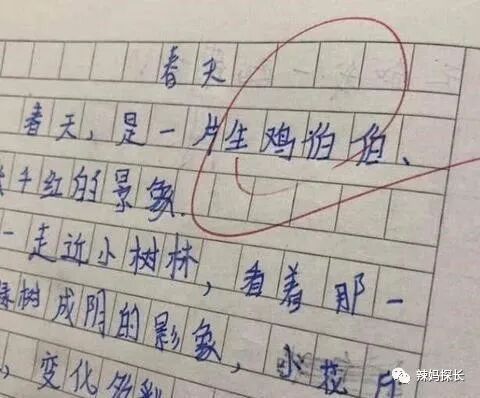 春天
春天，是一片生鸡伯伯、
千红的景象.
一走近小树林，看着那一
树成阴的影象，小花片
，变化
辣妈探长